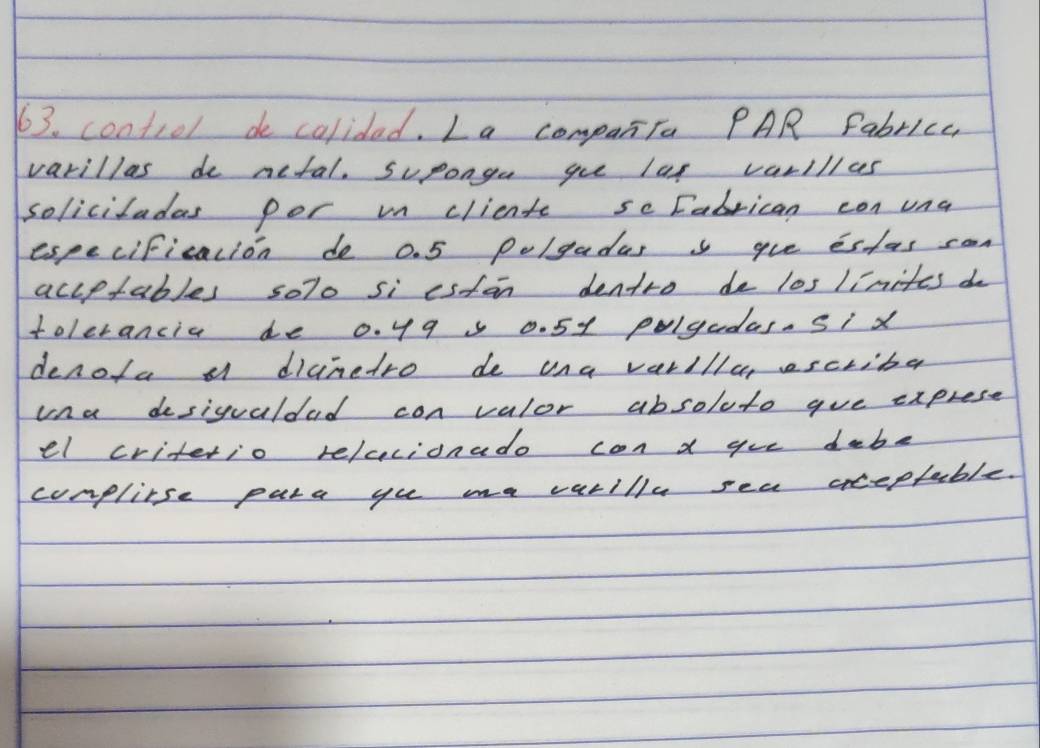 63. control de calidad. La compañía PAR Fabrica
varillas de metal. suponga que las varillas
solicitadas por un cliente se Fabrican con una
especificación de 0.5 pulgadas y que éstas son
aceptables solo si están dentro de los límites de
tolerancia de 0.49 y 0.51 pulgadas. si x
denota el diámetro de una varilla, escriba
una desigualdad con valor absoluto que exprese
el criterio relacionado con x que debe
cumplirse para que una varilla sea aceptable.